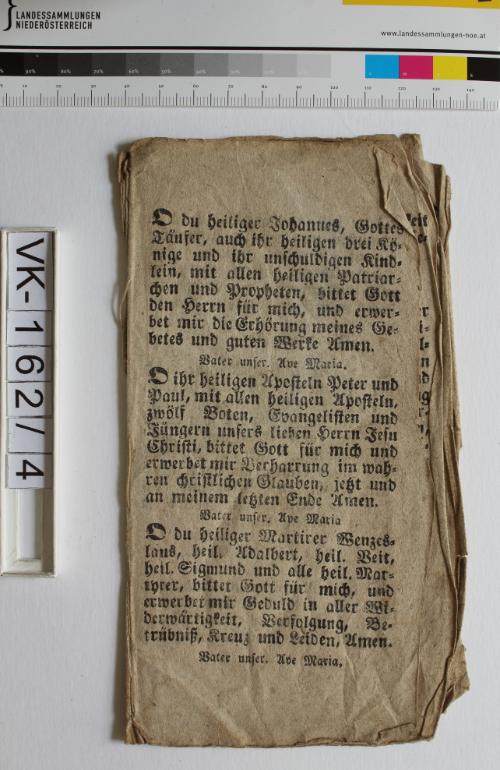 LANDESSAMMLUNGEN
NIEDERÖSTERREICH
www.landessammlungen-noe.at
VK-162/4
O du heiliger Johannes, Gottes
Täufer, auch ihr heiligen drei Kö-
nige und ihr unschuldigen Kind-
lein, mit allen heiligen Patriar-
chen und Propheten, bittet Gott
den Herrn für mich, und erwer-
bet mir die Erhörung meines Ge-
betes und guten Werke Amen.
Vater unser. Ave Maria.
O ihr heiligen Aposteln Peter und
Paul, mit allen heiligen Aposteln,
zwölf Boten, Evangelisten und
Jüngern unsers lieben Herrn Jesu
Christi, bittet Gott für mich und
erwerbet mir Verharrung im wah-
ren christlichen Glauben, jetzt und
an meinem letzten Ende Amen.
Vater unser. Ave Maria
O du heiliger Martirer Wenzes-
laus, heil. Adalbert, heil. Veit,
heil. Sigmund und alle heil. Mar-
tyrer, bittet Gott für mich, und
erwerbet mir Geduld in aller Wi-
derwärtigkeit, Verfolgung, Be-
trübniß, Kreuz und Leiden, Amen.
Vater unser. Ave Maria.